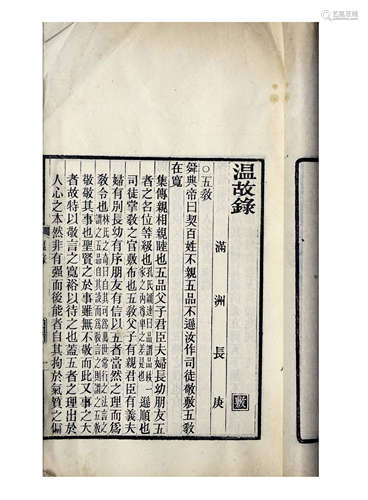 温故錄
滿洲長庚
○五敎
舜典帝曰契百姓不親五品不遜汝作司徒敬敷五敎
在寬
集傳親相親睦也五品父子君臣夫婦長幼朋友五
者之名位等級也 遜順也
司徒掌敎之官敷布也五敎父子有親君臣有義夫
婦有別長幼有序朋友有信以五者當然之理而爲
敎令也
敬敬其事也聖賢之於事雖無不敬而此又事之大
者故特以敬言之寬裕以待之也蓋五者之理出於
人心之本然非有強而後能者自其拘於氣質之偏